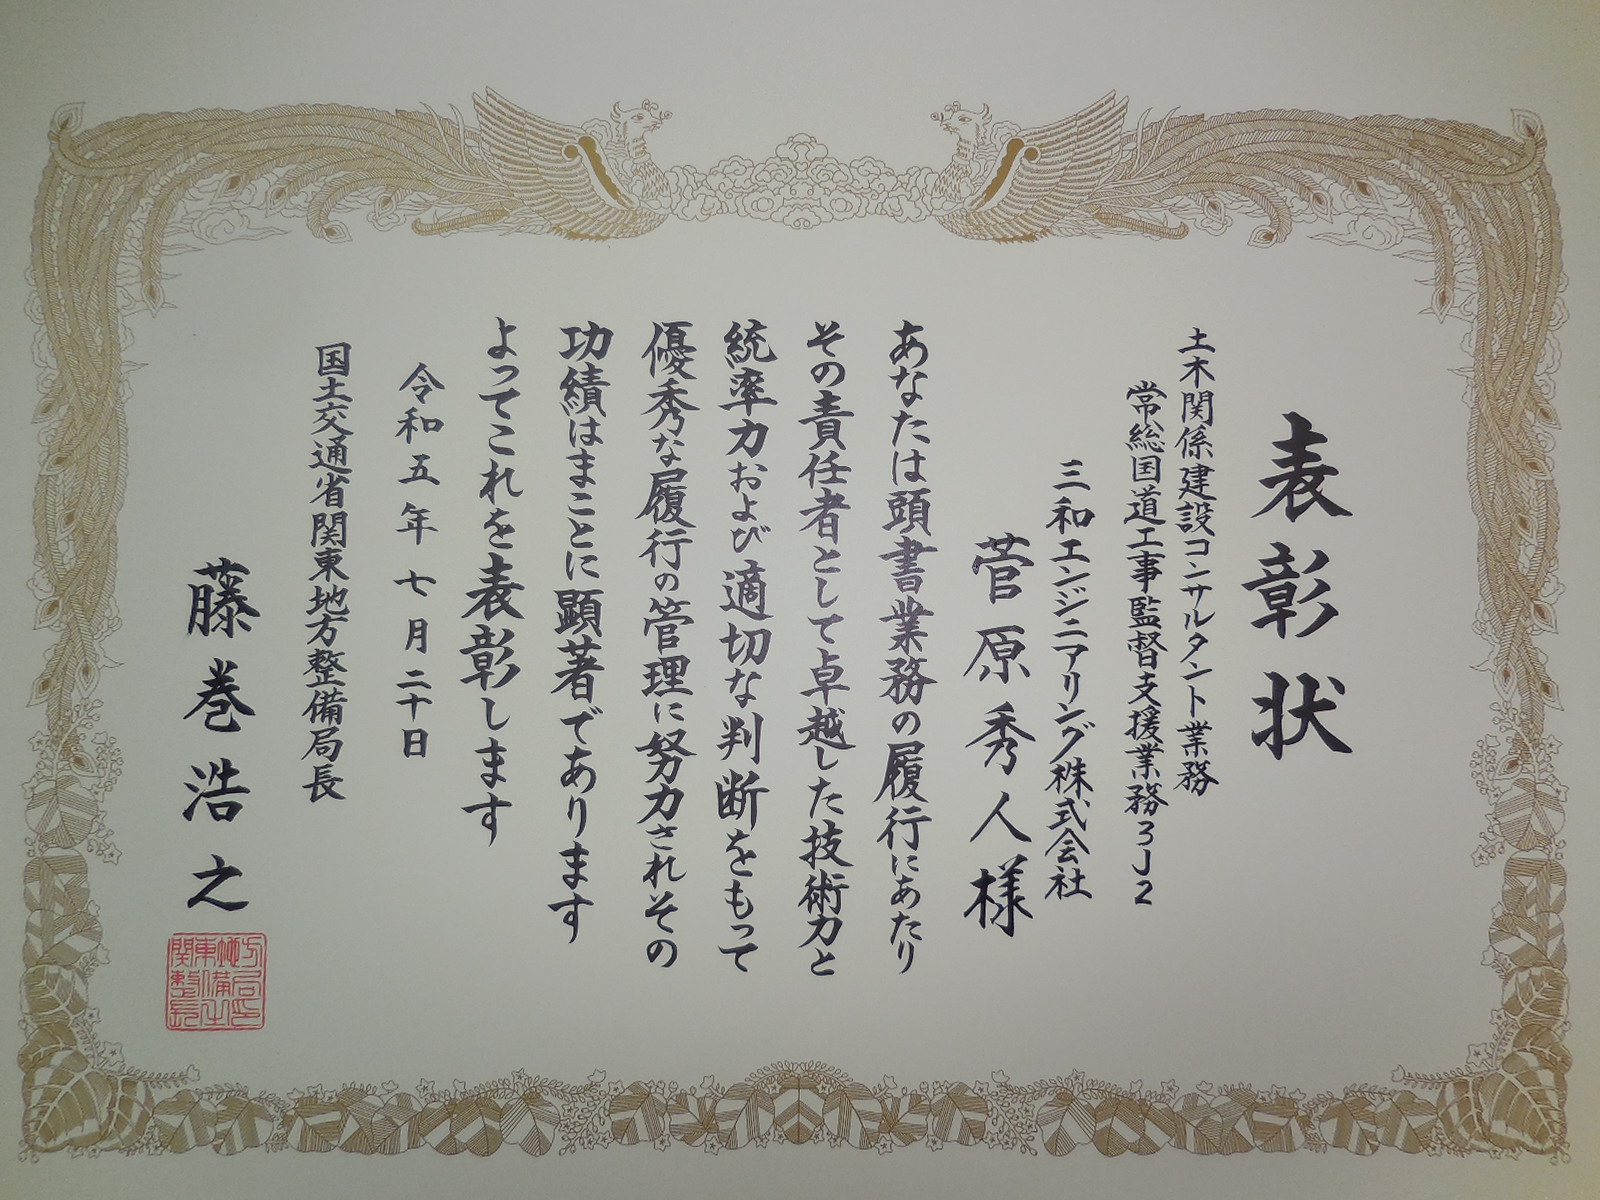 表彰状
土木関係建設コンサルタント業務
常総国道工事監督支援業務3J2
三和エンジニアリング株式会社
菅原秀人様
あなたは頭書業務の履行にあたり
その責任者として卓越した技術力と
統率力および適切な判断をもって
優秀な履行の管理に努力されその
功績はまことに顕著であります
よってこれを表彰します
令和五年七月二十日
国土交通省関東地方整備局長
藤巻浩之